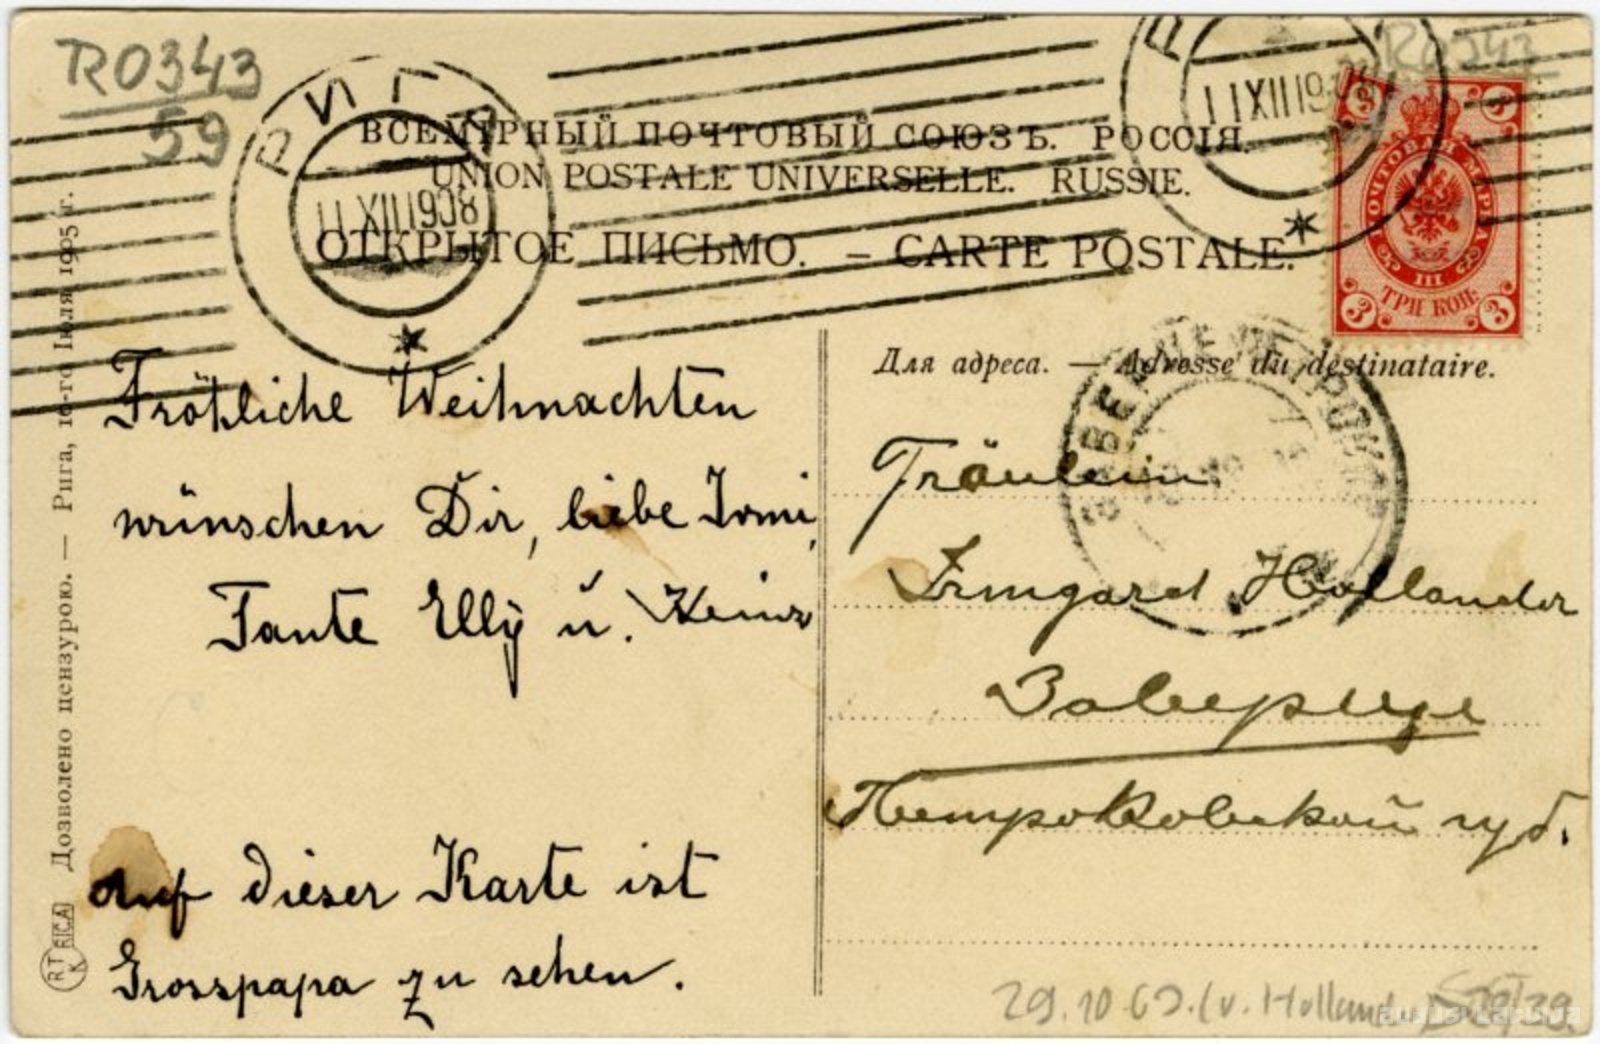 R0343
59
РИГА
11 XII 1908
11 XII 19
R0343
ВСЕМІРНЫЙ ПОЧТОВЫЙ СОЮЗЪ. РОССІЯ.
UNION POSTALE UNIVERSELLE. RUSSIE.
ОТКРЫТОЕ ПИСЬМО. – CARTE POSTALE.
ПОЧТОВАЯ МАРКА
III
ТРИ КОП.
3 3 3 3
Для адреса. — Adresse du destinataire.
Fröhliche Weihnachten
wünschen Dir, liebe Irmi,
Tante Elly u. Heinz
auf dieser Karte ist
Grosspapa zu sehen.
Fräulein
Irmgard Hollander
Заверце
Петроковской губ.
Дозволено цензурою. — Рига, 10-го Іюля 1905 г.
RTK RIGA
29.10 63. (v. Hollander)